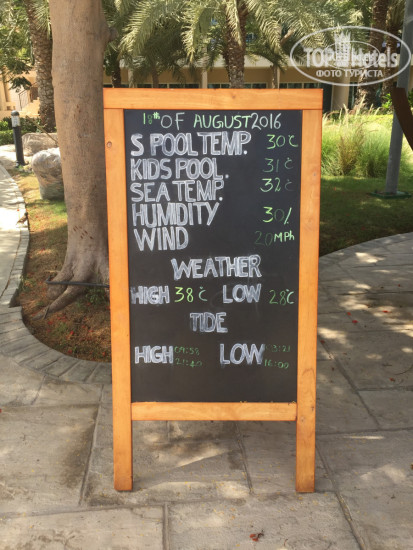 TOPHotels
ФОТО ТУРИСТА
18th OF AUGUST 2016
S POOL TEMP. 30°C
KIDS POOL. 31°C
SEA TEMP. 32°C
HUMIDITY 30%
WIND 20MPh
WEATHER
HIGH 38°C LOW 28°C
TIDE
HIGH 09:58 LOW 03:21
21:40 16:00